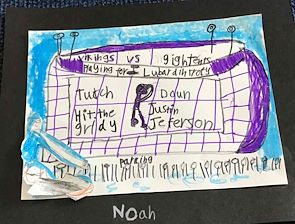 Vikings vs 9ighteners
Playing for Lubardi trofy
Tutch Daun
Hit the Justin
gridy Jeferson
parking
NOah